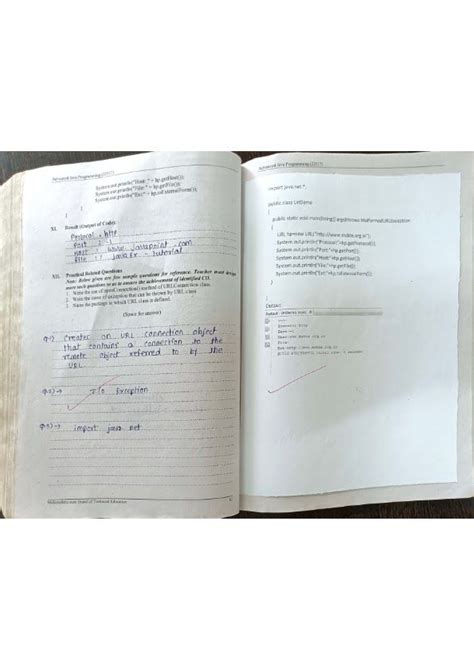 Advanced Java Programming (22517)
System.out.println("Host: " + hp.getHost());
System.out.println("File: " + hp.getFile());
System.out.println("Ext:" + hp.toExternalForm());
}
}
XI. Result (Output of Code):
Protocol = http
Port : -1
Host : www. javapoint . com
File : / java Ex - tutorial
XII. Practical Related Questions
Note: Below given are few sample questions for reference. Teacher must design
more such questions so as to ensure the achievement of identified CO.
1. Write the use of openConnection() method of URLConnection class.
2. Write the name of exception that can be thrown by URL class
3. Name the package in which URL class is defined.
(Space for answer)
Q.1) Creates an URL connection object
that contains a connection to the
remote object referred to by the
URL.
Q.2) → I O Exception
Q.3) → import java. net
Maharashtra state Board of Technical Education
Advanced Java Programming (22517)
import java.net.*;
public class UrlDemo
public static void main(String[] args)throws MalformedURLException
{
URL hp=new URL("http://www.msbte.org.in");
System.out.println("Protocol:"+hp.getProtocol());
System.out.println("Port:"+hp.getPort());
System.out.println("Host:"+hp.getHost());
System.out.println("File:"+hp.getFile());
System.out.println("Ext:"+hp.toExternalForm());
}
}
Output: